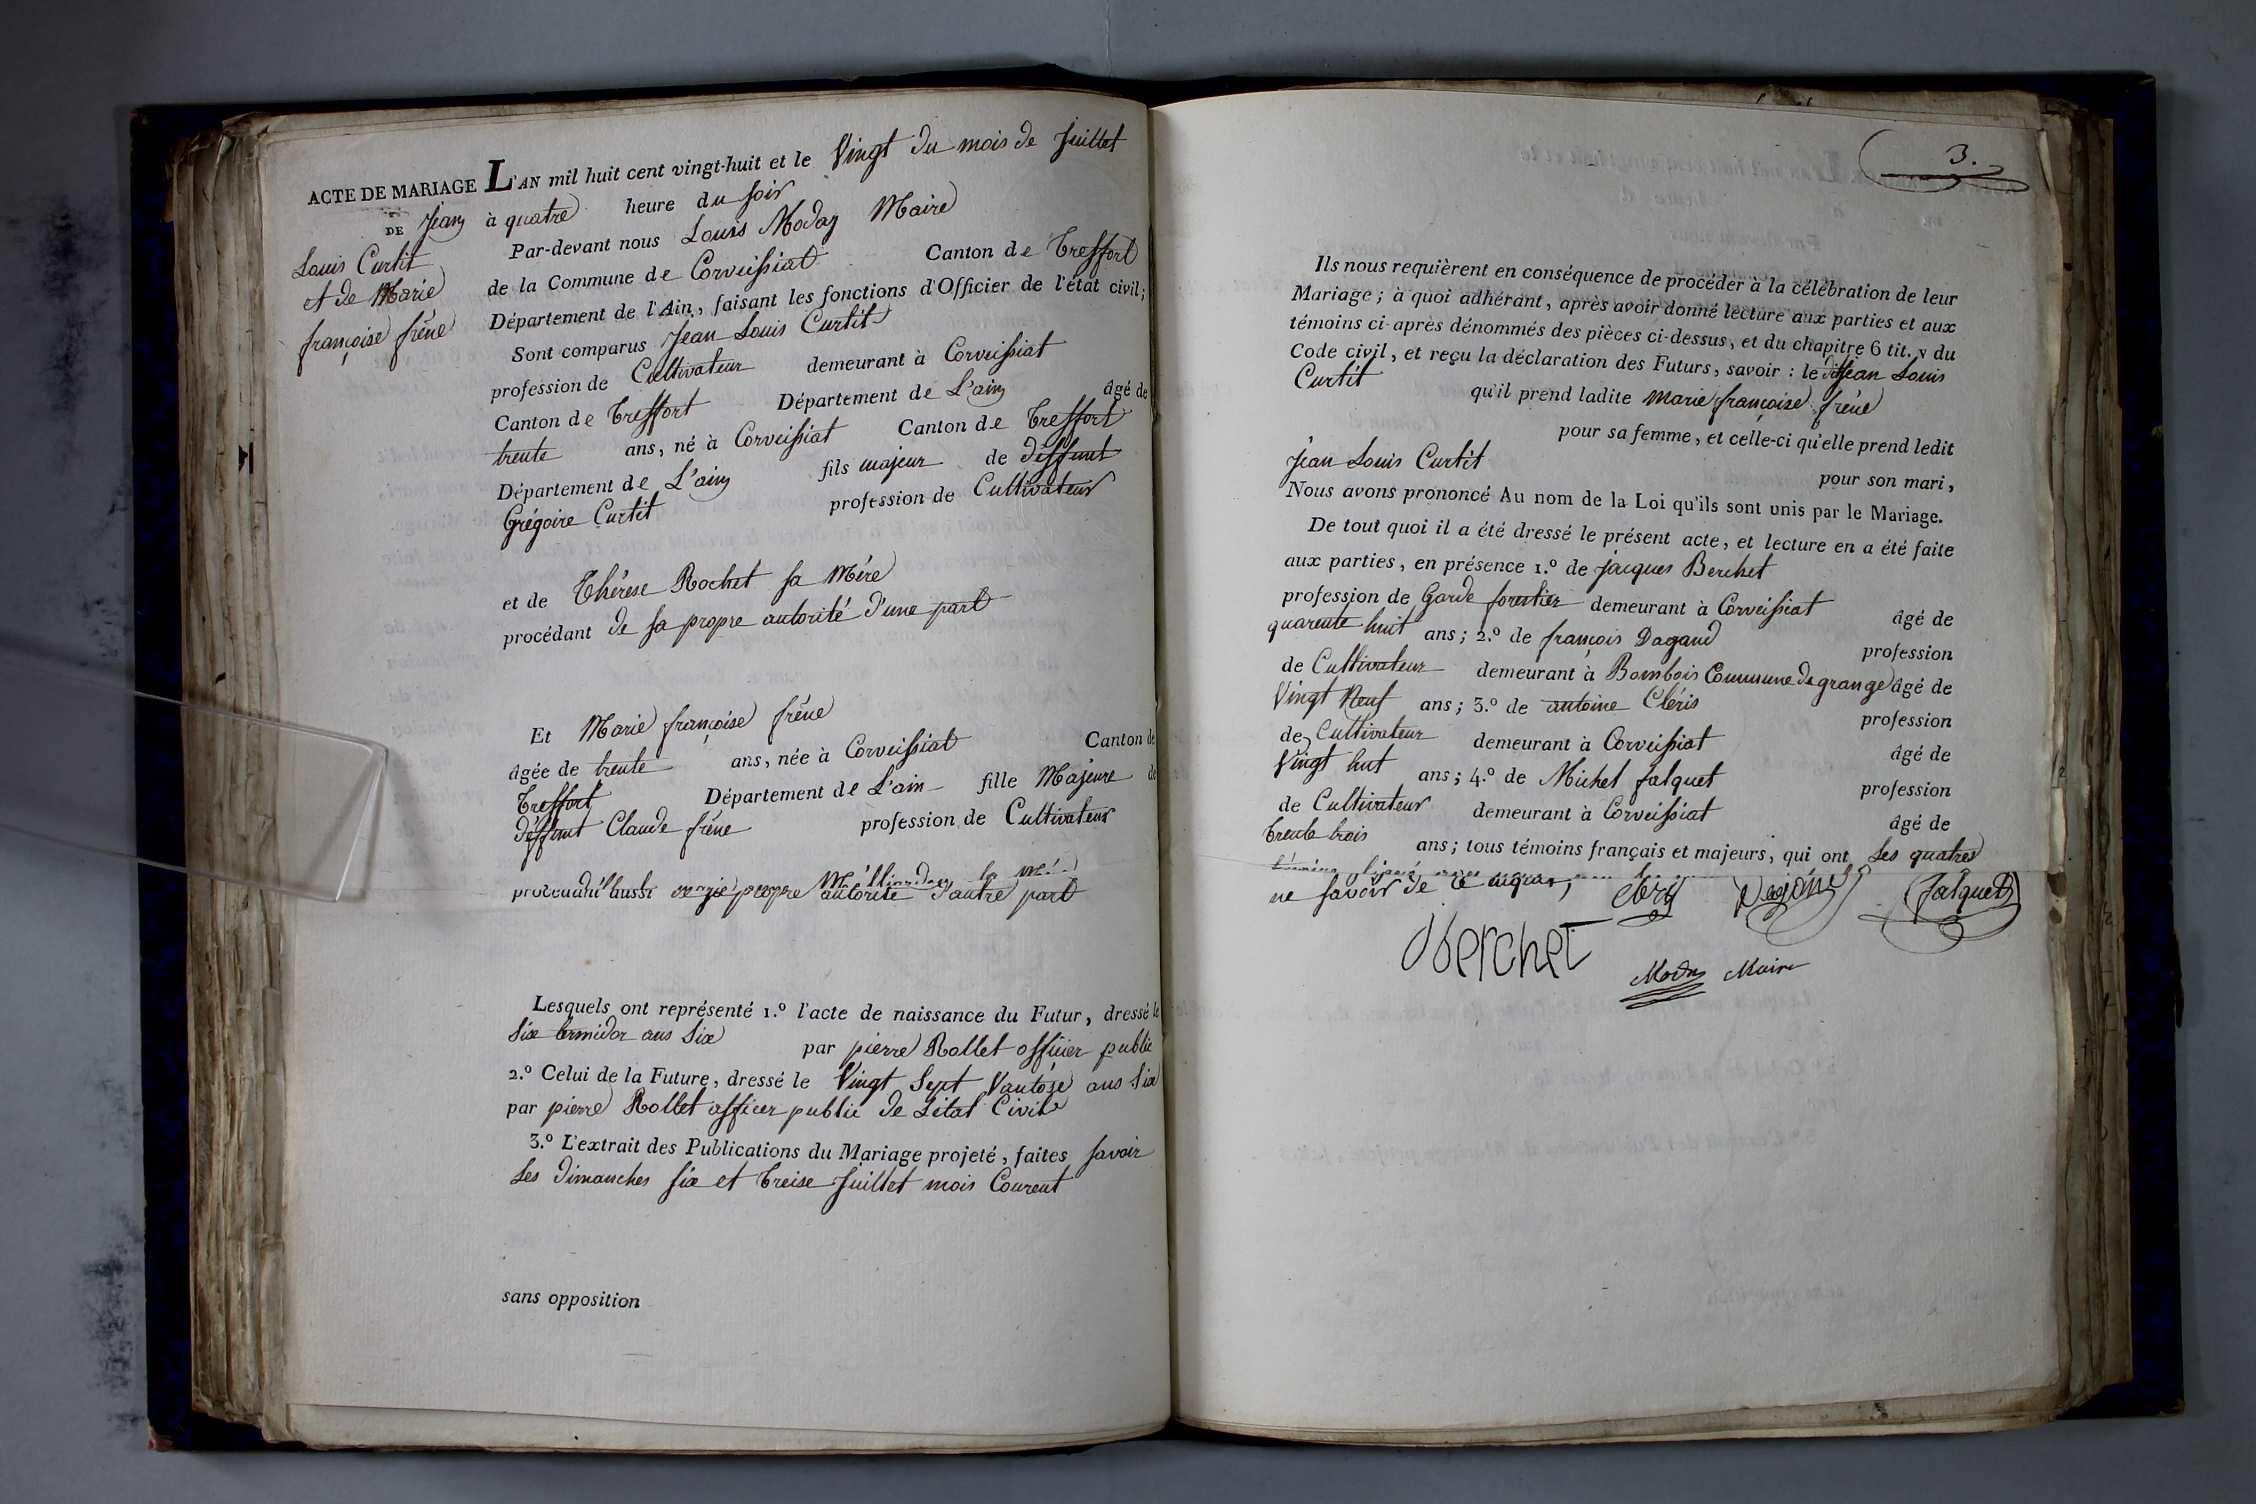 ACTE DE MARIAGE L'AN mil huit cent vingt-huit et le Vingt du mois de Juillet
DE Jean à quatre heure du soir
Louis Curtit
et de Marie
françoise frêne
Par-devant nous Louis Maire
de la Commune de Corveissiat Canton de Treffort
Département de l'Ain, faisant les fonctions d'Officier de l'état civil;
Sont comparus Jean Louis Curtit
profession de Cultivateur demeurant à Corveissiat
Canton de Treffort Département de L'ain âgé de
trente ans, né à Corveissiat Canton de Treffort
Département de L'ain fils majeur de deffunt
Grégoire Curtit profession de Cultivateur
et de Thérèse Rochet sa Mére
procédant de sa propre autorité d'une part
Et Marie françoise frêne
âgée de trente ans, née à Corveissiat Canton de
Treffort Département de L'ain fille Majeure de
déffunt Claude frêne profession de Cultivateur
propre autorité d'autre part
Lesquels ont représenté 1.º l'acte de naissance du Futur, dressé le
Six termidor ans Six par pierre Rollet officier public
2.º Celui de la Future, dressé le Vingt Sept Vantôse ans Six
par pierre Rollet officer public de L'état Civil
3.º L'extrait des Publications du Mariage projeté, faites savoir
Les dimanches six et treise Juillet mois Courent
sans opposition
3.
Ils nous requièrent en conséquence de procéder à la célébration de leur
Mariage; à quoi adhérant, après avoir donné lecture aux parties et aux
témoins ci-après dénommés des pièces ci-dessus, et du chapitre 6 tit. v du
Code civil, et reçu la déclaration des Futurs, savoir : le dit Jean Louis
Curtit qu'il prend ladite marie françoise frêne
pour sa femme, et celle-ci qu'elle prend ledit
Jean Louis Curtit pour son mari,
Nous avons prononcé Au nom de la Loi qu'ils sont unis par le Mariage.
De tout quoi il a été dressé le présent acte, et lecture en a été faite
aux parties, en présence 1.º de jacques Berchet
profession de Garde forestier demeurant à Corveissiat âgé de
quarente huit ans; 2.º de françois Dagand profession
de Cultivateur demeurant à Bombois Commune de grange âgé de
Vingt Neuf ans; 3.º de antoine Cléris profession
de Cultivateur demeurant à Corveissiat âgé de
Vingt hut ans; 4.º de Michel falquet profession
de Cultivateur demeurant à Corveissiat âgé de
trente trois ans; tous témoins français et majeurs, qui ont Les quatres
ne savoir de
falquet
berchet
Maire